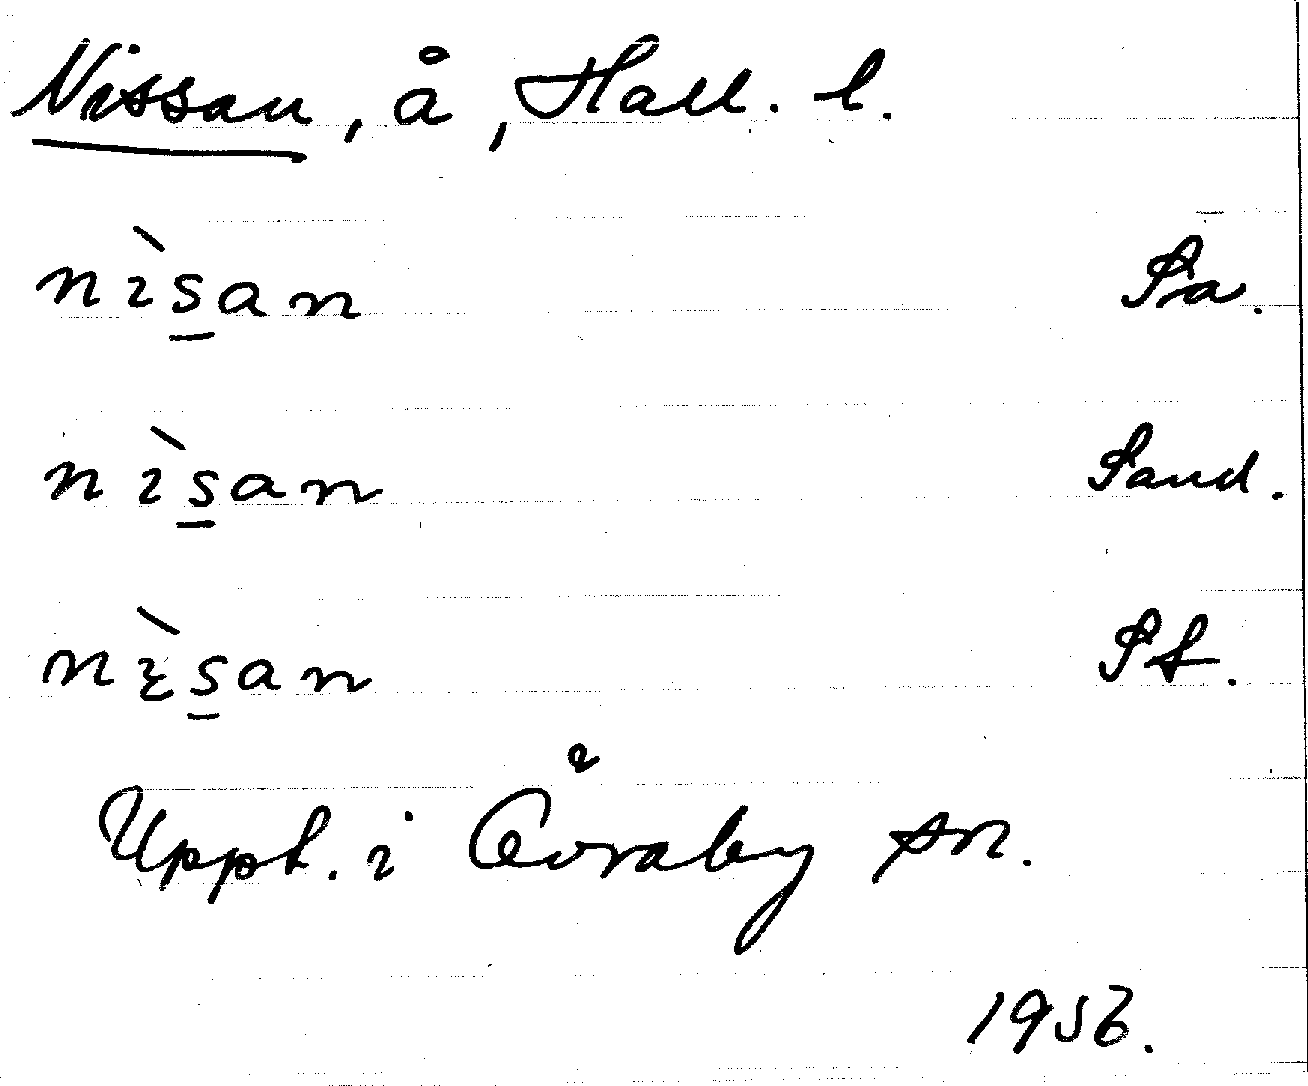 Nissan, å, Hall. l.
nìs̲an Sa.
nìs̲an Sand.
nìs̲an St.
Uppt. i Övraby sn.
1956.